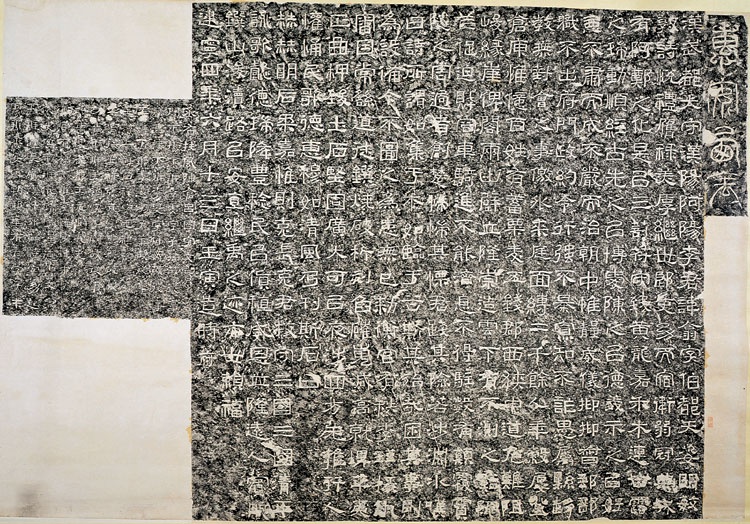 惠安西表
漢武都太守漢陽阿陽李君諱翕字伯都天姿明敏
敦詩悅禮膺祿美厚繼世郎吏幼而宿衛弱冠典城
有阿鄭之化是以三剖符守致黃龍嘉禾木連甘露
之瑞動順經古先之以博愛陳之以德義示之以好
惡不肅而成不嚴而治朝中惟靜威儀抑抑督郵部
職不出府門政約令行強不暴寡知不詐愚屬縣趍
教無對會之事徼外來庭面縛二千餘人年穀屢登
倉庾惟億百姓有蓄粟麥五錢郡西狹中道危難阻
峻緣崖俾閣兩山壁立隆崇造雲下有不測之谿阨
芒促迫財容車騎進不能濟息不得駐數有顛覆霣
隧之害過者創楚惴惴其慄君踐其險若涉淵冰嘆
曰詩所謂如集于木如臨于谷斯其殆哉困其事則
為設備今不圖之為患無已敕衡官有秩李瑾掾仇
審因常繇道徒鐉燒破析刻臽磪嵬減高就埤平夷
正曲柙致土石堅固廣大可以夜涉四方无雍行人
懽悀民歌德惠穆如清風乃刊斯石曰
赫赫明后柔嘉惟則克長克君牧守三國三國清平
詠歌懿德瑞降豐稔民以貨稙威恩並隆遠人賓服
鐉山浚瀆路以安直繼禹之迹亦世賴福
建寧四年六月十三日壬寅造時府